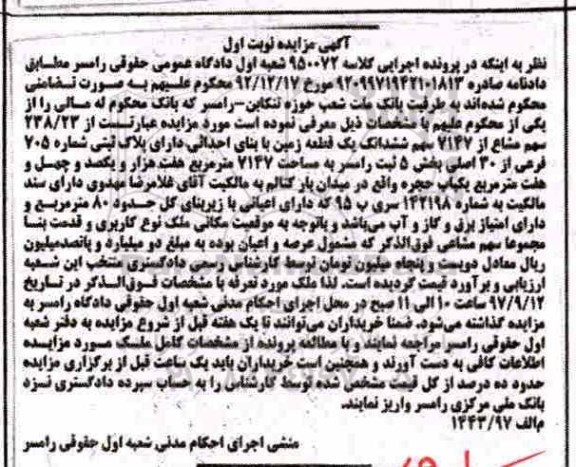 آگهی مزایده نوبت اول
نظر به اینکه در پرونده اجرایی کلاسه ۹۵۰۰۷۲ شعبه اول دادگاه عمومی حقوقی رامسر مطابق
دادنامه صادره ۹۲۰۹۹۷۱۹۴۲۱۰۱۸۱۳ مورخ ۹۲/۱۲/۱۷ محکوم علیهم به صورت تضامنی
محکوم شده‌اند به طرفیت بانک ملت شعب حوزه تنکابن-رامسر که بانک محکوم له مالی را از
یکی از محکوم علیهم با مشخصات ذیل معرفی نموده است مورد مزایده عبارتست از ۲۳۸/۲۳
سهم مشاع از ۷۱۴۷ سهم ششدانگ یک قطعه زمین با بنای احداثی دارای پلاک ثبتی شماره ۷۰۵
فرعی از ۳۰ اصلی بخش ۵ ثبت رامسر به مساحت ۷۱۴۷ مترمربع هفت هزار و یکصد و چهل و
هفت مترمربع یکباب حجره واقع در میدان بار کتالم به مالکیت آقای غلامرضا مهدوی دارای سند
مالکیت به شماره ۱۴۲۱۹۸ سری ب ۹۵ که دارای اعیانی با زیربنای کل حدود ۸۰ مترمربع و
دارای امتیاز برق و گاز و آب می‌باشد و باتوجه به موقعیت مکانی ملک نوع کاربری و قدمت بنا
مجموعا سهم مشاعی فوق‌الذکر که مشمول عرصه و اعیان بوده به مبلغ دو میلیارد و پانصدمیلیون
ریال معادل دویست و پنجاه میلیون تومان توسط کارشناس رسمی دادگستری منتخب این شعبه
ارزیابی و برآورد قیمت گردیده است. لذا ملک مورد تعرفه با مشخصات فوق‌الذکر در تاریخ
۹۷/۹/۱۲ ساعت ۱۰ الی ۱۱ صبح در محل اجرای احکام مدنی شعبه اول حقوقی دادگاه رامسر به
مزایده گذاشته می‌شود. ضمنا خریداران می‌توانند تا یک هفته قبل از شروع مزایده به دفتر شعبه
اول حقوقی رامسر مراجعه نمایند و با مطالعه پرونده از مشخصات کامل ملک مورد مزایده
اطلاعات کافی به دست آورند و همچنین است خریداران باید یک ساعت قبل از برگزاری مزایده
حدود ده درصد از کل قیمت مشخص شده توسط کارشناس را به حساب سپرده دادگستری نزد
بانک ملی مرکزی رامسر واریز نمایند.
م‌الف ۱۴۴۳/۹۷
منشی اجرای احکام مدنی شعبه اول حقوقی رامسر